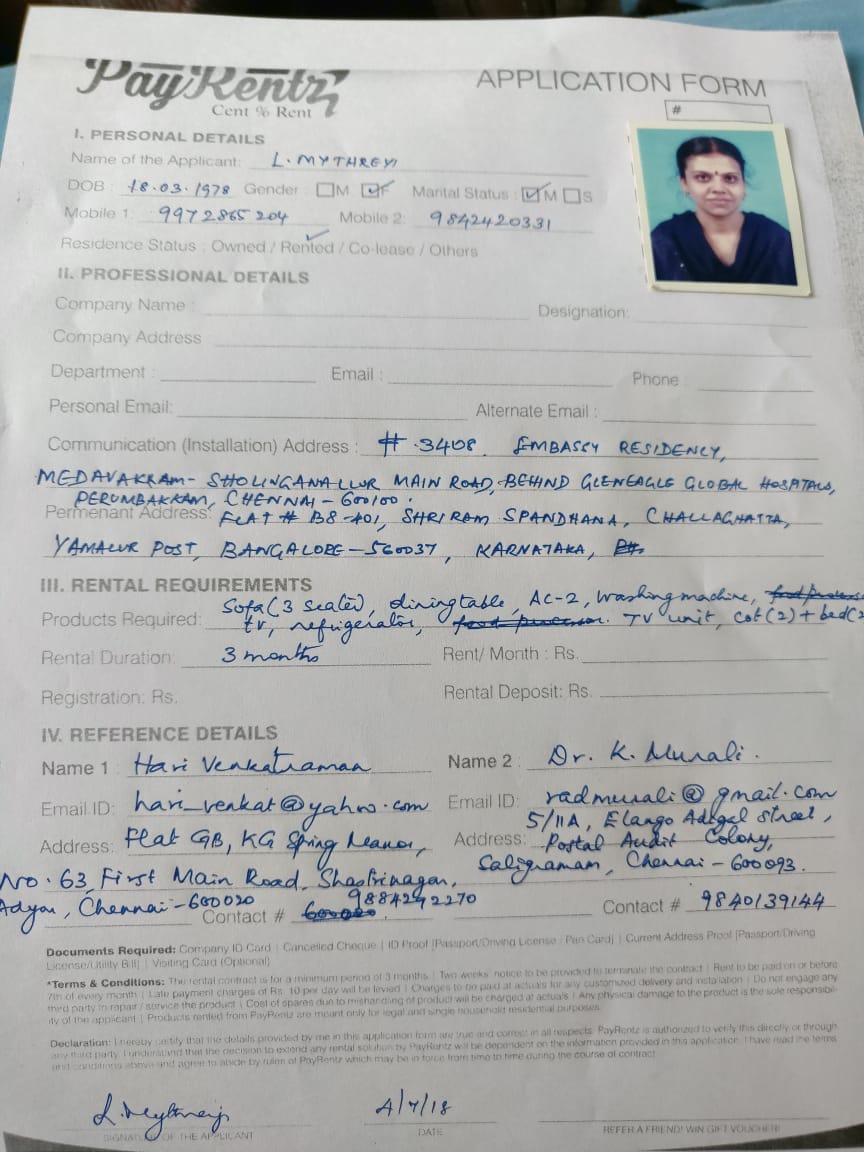 PayRentz
Cent % Rent
APPLICATION FORM
#
I. PERSONAL DETAILS
Name of the Applicant: L. MYTHREYI
DOB : 18.03.1978 Gender : M F Marital Status : M S
Mobile 1: 9972865204 Mobile 2: 9842420331
Residence Status : Owned / Rented / Co-lease / Others
II. PROFESSIONAL DETAILS
Company Name : Designation:
Company Address
Department : Email : Phone :
Personal Email: Alternate Email :
Communication (Installation) Address : # 3408 EMBASSY RESIDENCY,
MEDAVAKKAM- SHOLINGANALLUR MAIN ROAD, BEHIND GLENEAGLE GLOBAL HOSPITALS,
PERUMBAKKAM, CHENNAI - 600100.
Permenant Address: FLAT # B8-401, SHRIRAM SPANDHANA, CHALLAGHATTA,
YAMALUR POST, BANGALORE - 560037, KARNATAKA,
III. RENTAL REQUIREMENTS
Products Required: Sofa (3 seater), dining table, AC-2, washing machine,
tv, refrigerator, TV unit, cot (2) + bed (2
Rental Duration: 3 months Rent/ Month : Rs.
Registration: Rs. Rental Deposit: Rs.
IV. REFERENCE DETAILS
Name 1 : Hari Venkatraman Name 2 : Dr. K. Murali.
Email ID: hari_venkat@yahoo.com Email ID: radmurali@gmail.com
Address: Flat GB, KG Spring Manor, Address: 5/11A, Elango Adigal street,
Postal Audit Colony,
No. 63, First Main Road, Shastrinagar, Saligramam, Chennai - 600093.
Adyar, Chennai - 600020
Contact # 9884292270 Contact # 9840139144
Documents Required: Company ID Card | Cancelled Cheque | ID Proof [Passport/Driving License / Pan Card] | Current Address Proof [Passport/Driving
License/Utility Bill] | Visiting Card (Optional)
*Terms & Conditions: The rental contract is for a minimum period of 3 months | Two weeks' notice to be provided to terminate the contract | Rent to be paid on or before
7th of every month | Late payment charges of Rs. 10 per day will be levied | Charges to be paid at actuals for any customized delivery and installation | Do not engage any
third party to repair / service the product | Cost of spares due to mishandling of product will be charged at actuals | Any physical damage to the product is the sole responsibil-
ity of the applicant | Products rented from PayRentz are meant only for legal and single household residential purposes.
Declaration: I hereby certify that the details provided by me in this application form are true and correct in all respects. PayRentz is authorized to verify this directly or through
any third party. I understand that the decision to extend any rental solution by PayRentz will be dependent on the information provided in this application. I have read the terms
and conditions above and agree to abide by rules of PayRentz which may be in force from time to time during the course of contract.
L. Mythreyi 4/7/18
SIGNATURE OF THE APPLICANT DATE REFER A FRIEND! WIN GIFT VOUCHER!